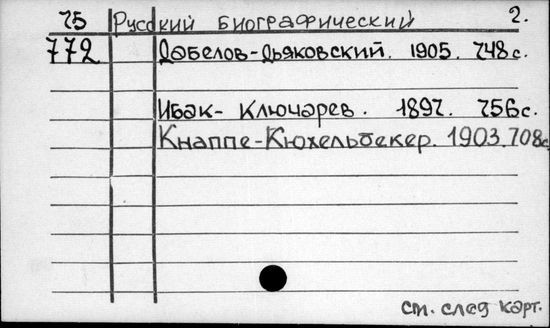 75 Русский биографический 2.
772 Дабелов-Дьяковский. 1905. 748 с.
Ибак- Ключарев. 1897. 756с.
Кнаппе-Кюхельбекер. 1903. 708с.
см. след карт.